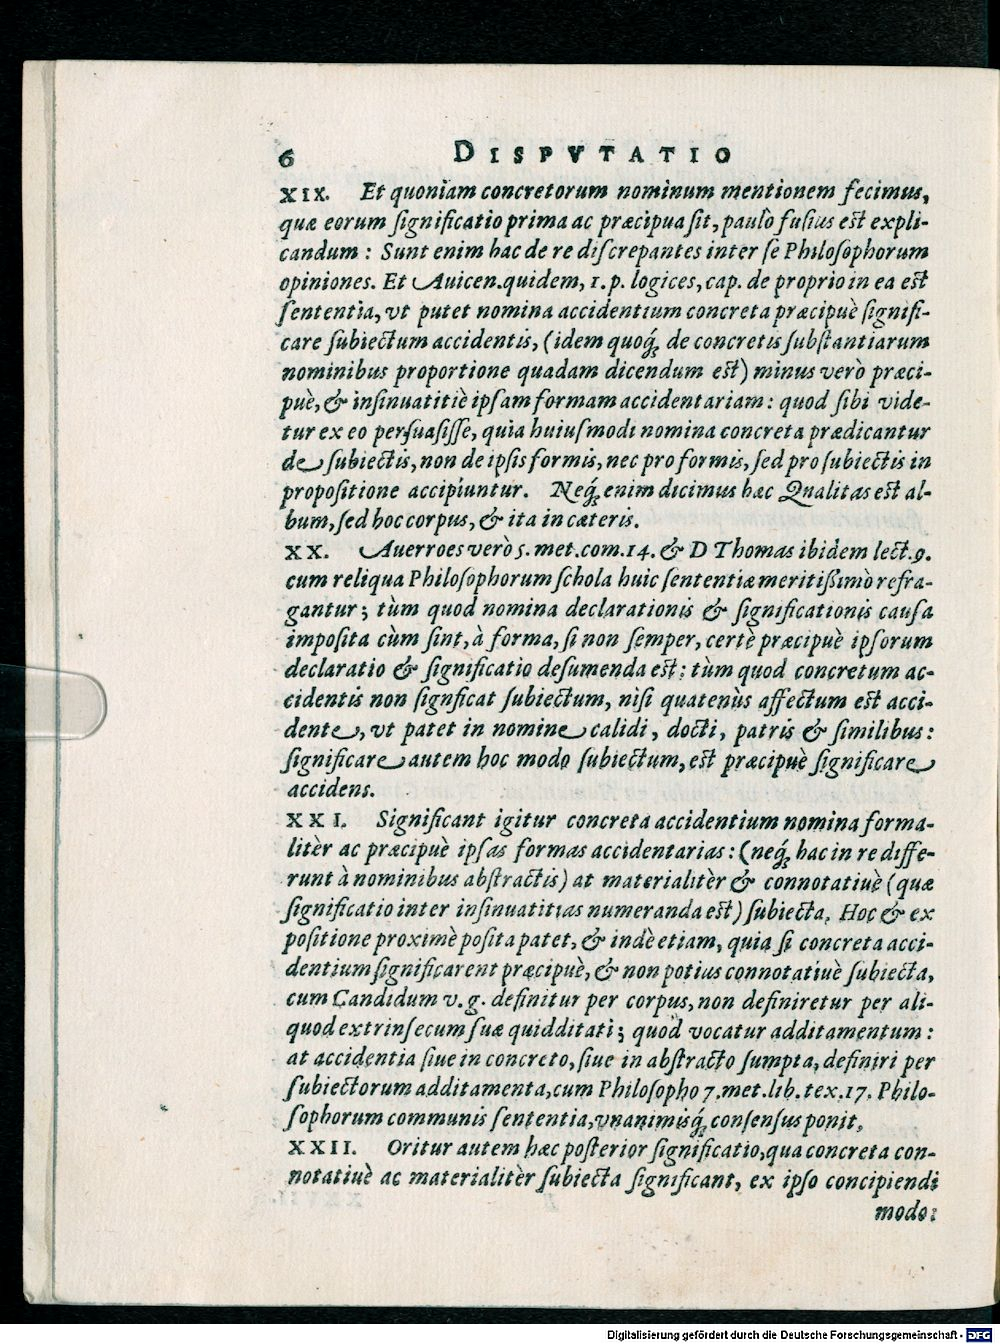 6 DISPVTATIO
XIX. Et quoniam concretorum nominum mentionem fecimus,
quæ eorum significatio prima ac præcipua sit, paulò fusius est expli-
candum: Sunt enim hac de re discrepantes inter se Philosophorum
opiniones. Et Auicen. quidem, 1. p. logices, cap. de proprio in ea est
sententia, vt putet nomina accidentium concreta præcipuè signifi-
care subiectum accidentis, (idem quoq́; de concretis substantiarum
nominibus proportione quadam dicendum est) minus verò præci-
puè, & insinuatitiè ipsam formam accidentariam: quod sibi vide-
tur ex eo persuasisse, quia huiusmodi nomina concreta prædicantur
de subiectis, non de ipsis formis, nec pro formis, sed pro subiectis in
propositione accipiuntur. Neq́; enim dicimus hæc Qualitas est al-
bum, sed hoc corpus, & ita in cæteris.
XX. Auerroes verò 5. met. com. 14. & D Thomas ibidem lect. 9.
cum reliqua Philosophorum schola huic sententiæ meritißimò refra-
gantur; tùm quod nomina declarationis & significationis causa
imposita cùm sint, à forma, si non semper, certè præcipuè ipsorum
declaratio & significatio desumenda est: tùm quod concretum ac-
cidentis non signficat subiectum, nisi quatenùs affectum est acci-
dente, vt patet in nomine calidi, docti, patris & similibus:
significare autem hoc modo subiectum, est præcipuè significare
accidens.
XXI. Significant igitur concreta accidentium nomina forma-
litèr ac præcipuè ipsas formas accidentarias: (neq́; hac in re diffe-
runt à nominibus abstractis) at materialitèr & connotatiuè (quæ
significatio inter insinuatitias numeranda est) subiecta. Hoc & ex
positione proximè posita patet, & indè etiam, quia si concreta acci-
dentium significarent præcipuè, & non potius connotatiuè subiecta,
cum Candidum v. g. definitur per corpus, non definiretur per ali-
quod extrinsecum suæ quidditati; quod vocatur additamentum:
at accidentia siue in concreto, siue in abstracto sumpta, definiri per
subiectorum additamenta, cum Philosopho 7. met. lib. tex. 17. Philo-
sophorum communis sententia, vnanimisq́; consensus ponit.
XXII. Oritur autem hæc posterior significatio, qua concreta con-
notatiuè ac materialitèr subiecta significant, ex ipso concipiendi
modo:
Digitalisierung gefördert durch die Deutsche Forschungsgemeinschaft - DFG